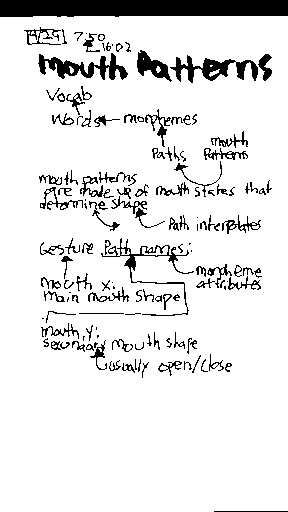 9/29 7:50
16:02
Mouth Patterns
Vocab
Words morphemes
Paths mouth Patterns
mouth patterns
are made up of mouth states that
determine shape
Path interpolates
Gesture Path names:
morpheme
attributes
mouth x:
main mouth shape
mouth y:
secondary mouth shape
usually open/close